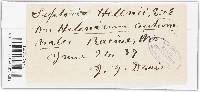 Septoria Helenii, E&E
On Helenium autum-
nale: Racine, Wis
June 2nd 89
J. J. Davis